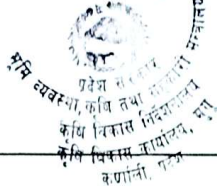 भूमि व्यवस्था, कृषि तथा सहकारी मन्त्रालय
प्रदेश सरकार
कृषि विकास निर्देशनालय
कृषि विकास कार्यालय, मुगु
कर्णाली, प्रदेश